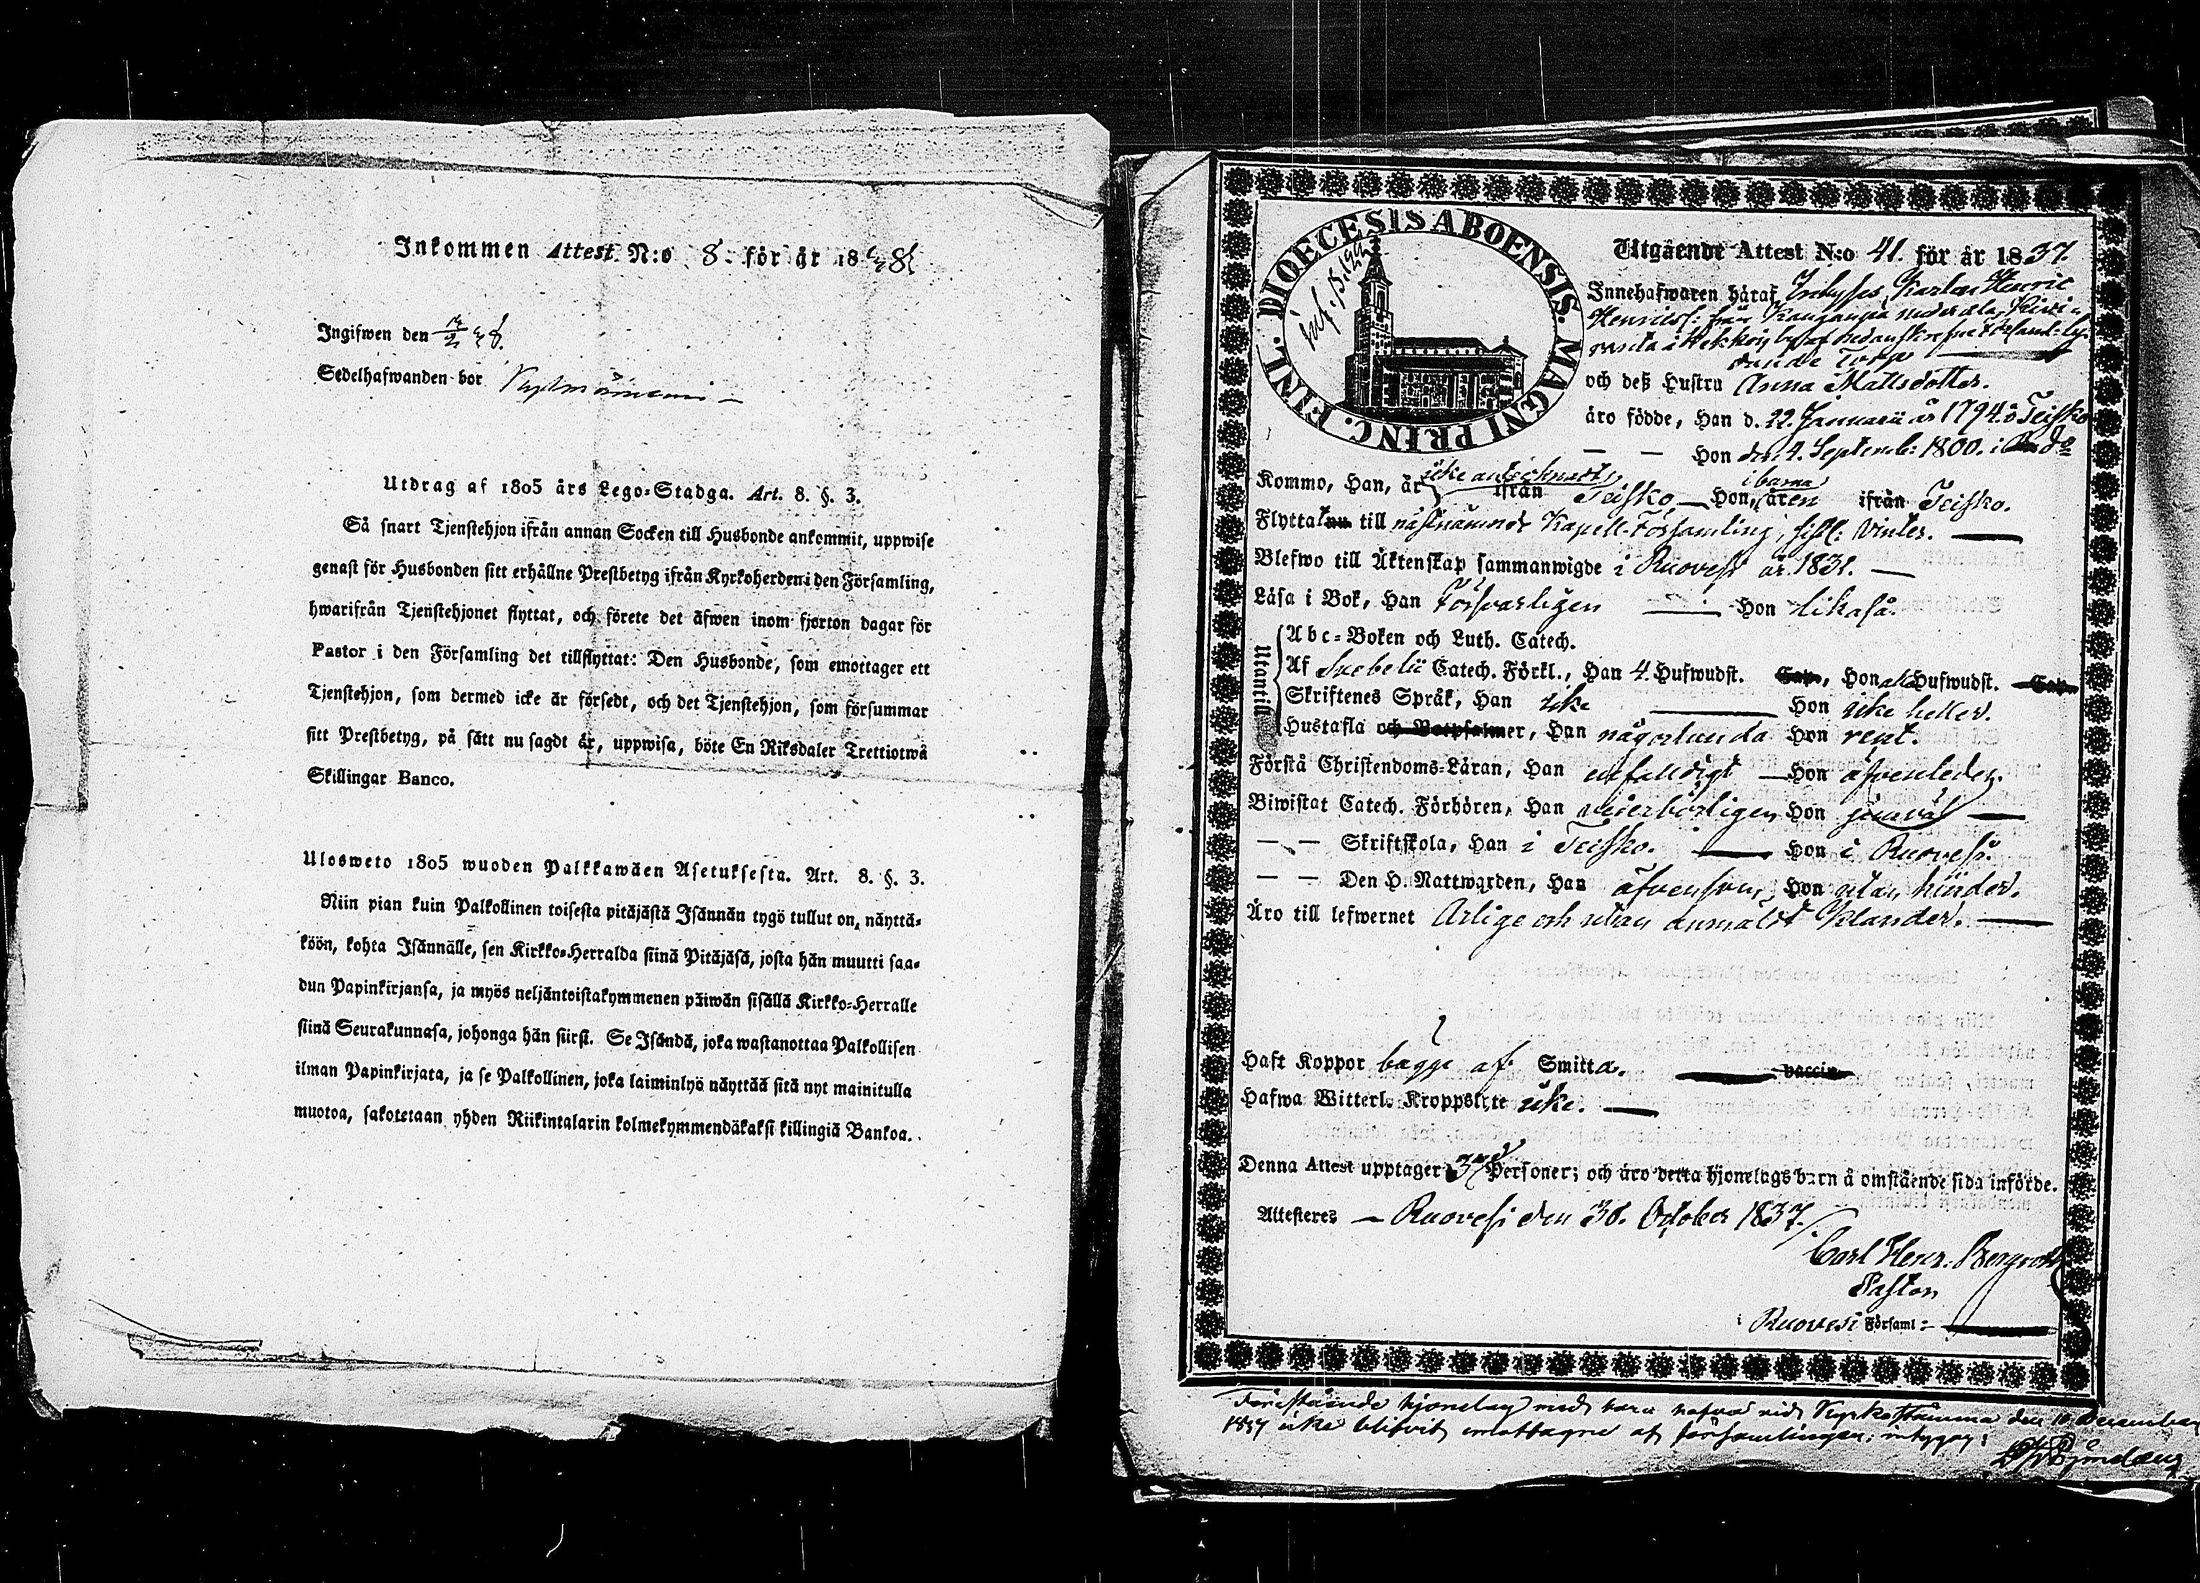 Inkommen Attest N:o 8. för år 1838
Ingifwen den 38.
Sedelhafwanden bor
Utdrag af 1805 års Lego-Stadga. Art. 8. §. 3.
Så snart Tjenstehjon ifrån annan Socken till Husbonde ankommit, uppwise
genast för Husbonden sitt erhållne Prestbetyg ifrån Kyrkoherden i den Församling,
hwarifrån Tjenstehjonet flyttat, och förete det äfwen inom fjorton dagar för
Pastor i den Församling det tillflyttat: Den Husbonde, som emottager ett
Tjenstehjon, som dermed icke är försedt, och det Tjenstehjon, som försummar
sitt Prestbetyg, på sätt nu sagdt är, uppwisa, böte En Riksdaler Trettiotwå
Skillingar Banco.
Ulosweto 1805 wuoden Palkkawäen Asetuksesta. Art. 8. §. 3.
Niin pian kuin Palkollinen toisesta pitäjästä Isännän tygö tullut on, näyttä-
köön, kohta Isännälle, sen Kirkko-Herralda siinä Pitäjäsä, josta hän muutti saa-
dun Papinkirjansa, ja myös neljäntoistakymmenen päiwän sisällä Kirkko-Herralle
siinä Seurakunnasa, johonga hän siirst. Se Isändä, joka wastanottaa Palkollisen
ilman Papinkirjata, ja se Palkollinen, joka laiminlyö näyttää sitä nyt mainitulla
muotoa, sakotetaan yhden Riikintalarin kolmekymmendäkaksi killingiä Bankoa.
DIOECESIS ABOENSIS. MAGNI PRINC. FINL.
Utgående Attest N:o 41. för år 1837.
Innehafwaren häraf Inhyses Karlen Henric
Henricss: från
i byaf
Torp
och deß Hustru Anna Mattsdotter.
äro födde, Han d. 22. Januarii år 1794. i Teisko
— — Hon den 4. September 1800. i do
Kommo, Han, år icke antecknadt, ifrån Teisko — Hon, i barna åren ifrån Teisko.
Flytta nu till nästnämnde Kapell-Församling, sistl: Vinter. —
Blefwo till Äktenskap sammanwigde i Ruovesi år 1831. —
Läsa i Bok, Han Försvarligen — Hon likaså.
Utantill
Abc-Boken och Luth. Catech.
Af Svebelii Catech. Förkl., Han 4. Hufwudst. Cap., Hon alla Hufwudst. Cap.
Skriftenes Språk, Han icke — Hon icke heller.
Hustafla och Botpsalmer, Han någorlunda Hon rent.
Förstå Christendoms-Läran, Han enfaldigt — Hon äfvenledes.
Biwistat Catech. Förhören, Han vederbörligen, Hon jemväl —
— — Skriftskola, Han i Teisko. — Hon i Ruovesi.
— — Den H. Nattwarden, Han äfvensom, Hon utan hinder.
Äro till lefwernet Ärlige och utan anmäldt klander. —
Haft Koppor begge af Smitta. — vaccin
Hafwa Witterl. Kroppslyte icke. —
Denna Attest upptager Personer; och äro detta hjonelags barn å omstående sida införde.
Attesteres — Ruovesi den 30. October 1837.
Carl Henr: Bergroth
Pastor
i Ruovesi Församl: —
Förestående hjonelag med barn hafva vid Kyrkostämma den 10 December
1837 icke blifvit emottagne af församlingen; intygar;